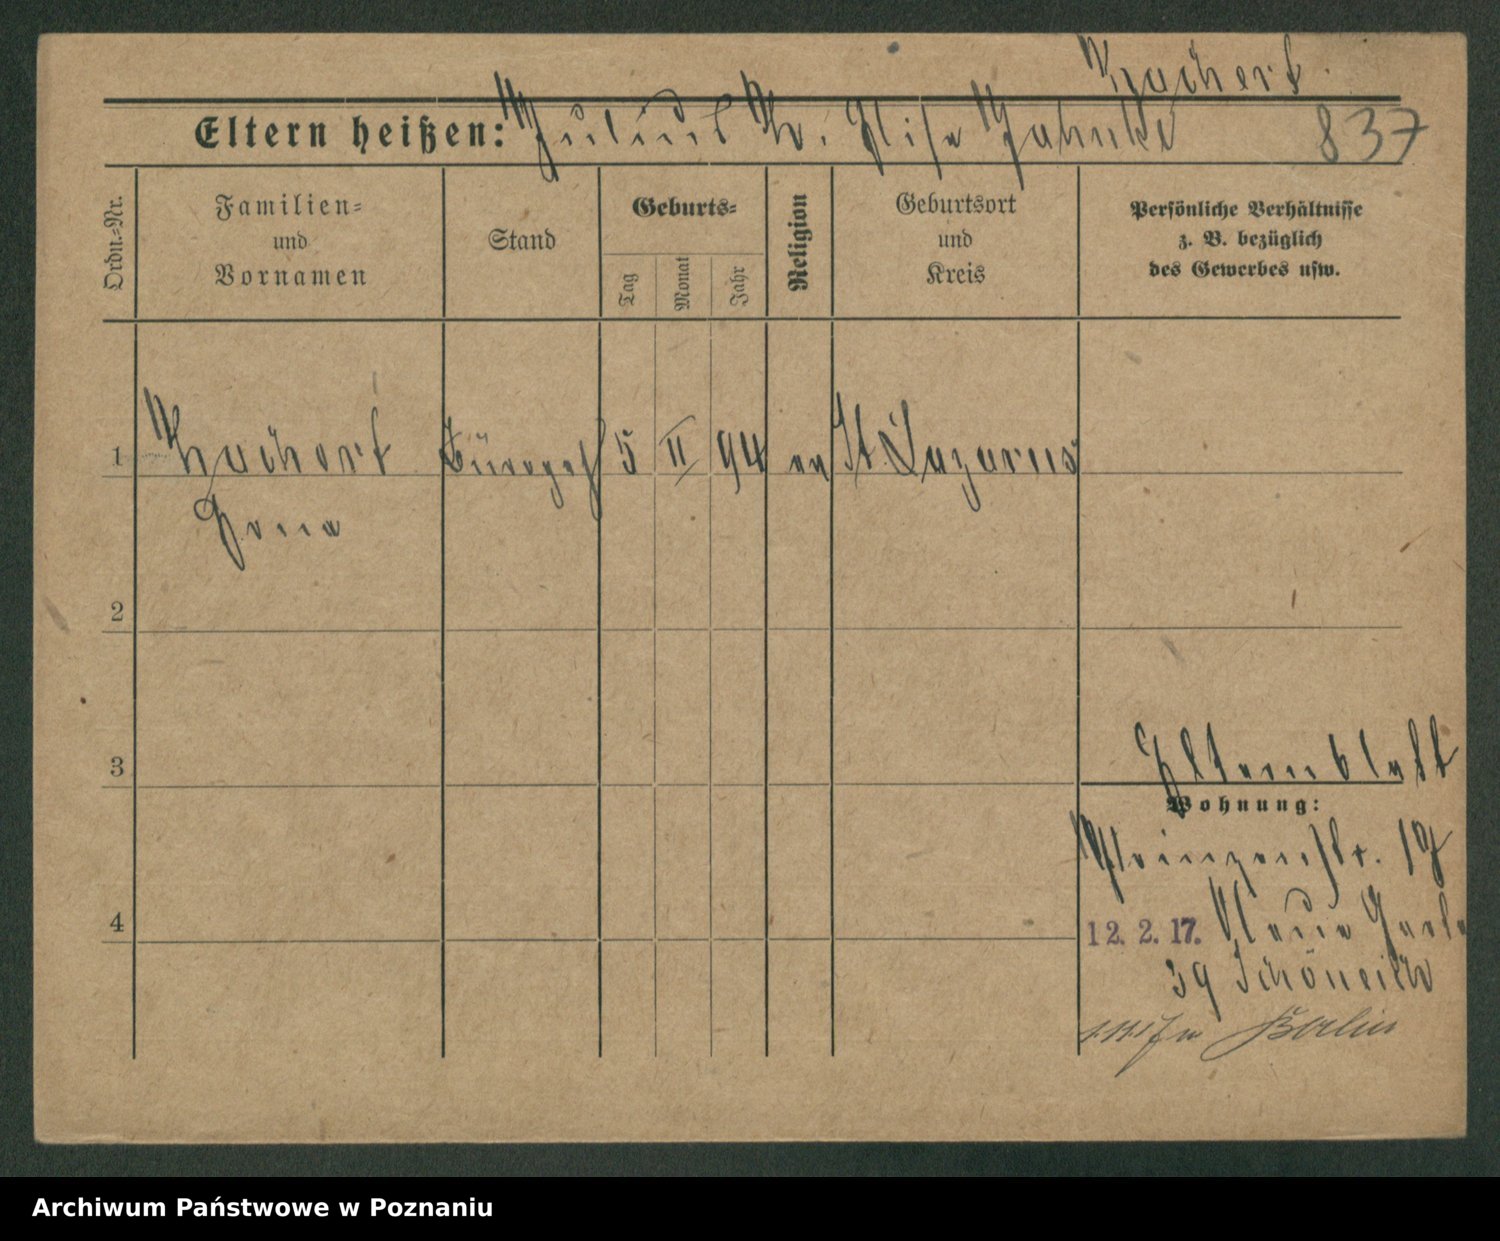 Zuchert
Eltern heißen: Julius Z. Elise Jahnke 837
Ordn.-Nr.
Familien-
und
Vornamen
Stand
Geburts-
Tag
Monat
Jahr
Religion
Geburtsort
und
Kreis
Persönliche Verhältnisse
z. B. bezüglich
des Gewerbes usw.
1 5 II 94 ev St. Lazarus
2
3
Elternblatt
Wohnung:
Prinzenstr. 17
4
12. 2. 17. Neue
39 Schöneich
Berlin
Archiwum Państwowe w Poznaniu